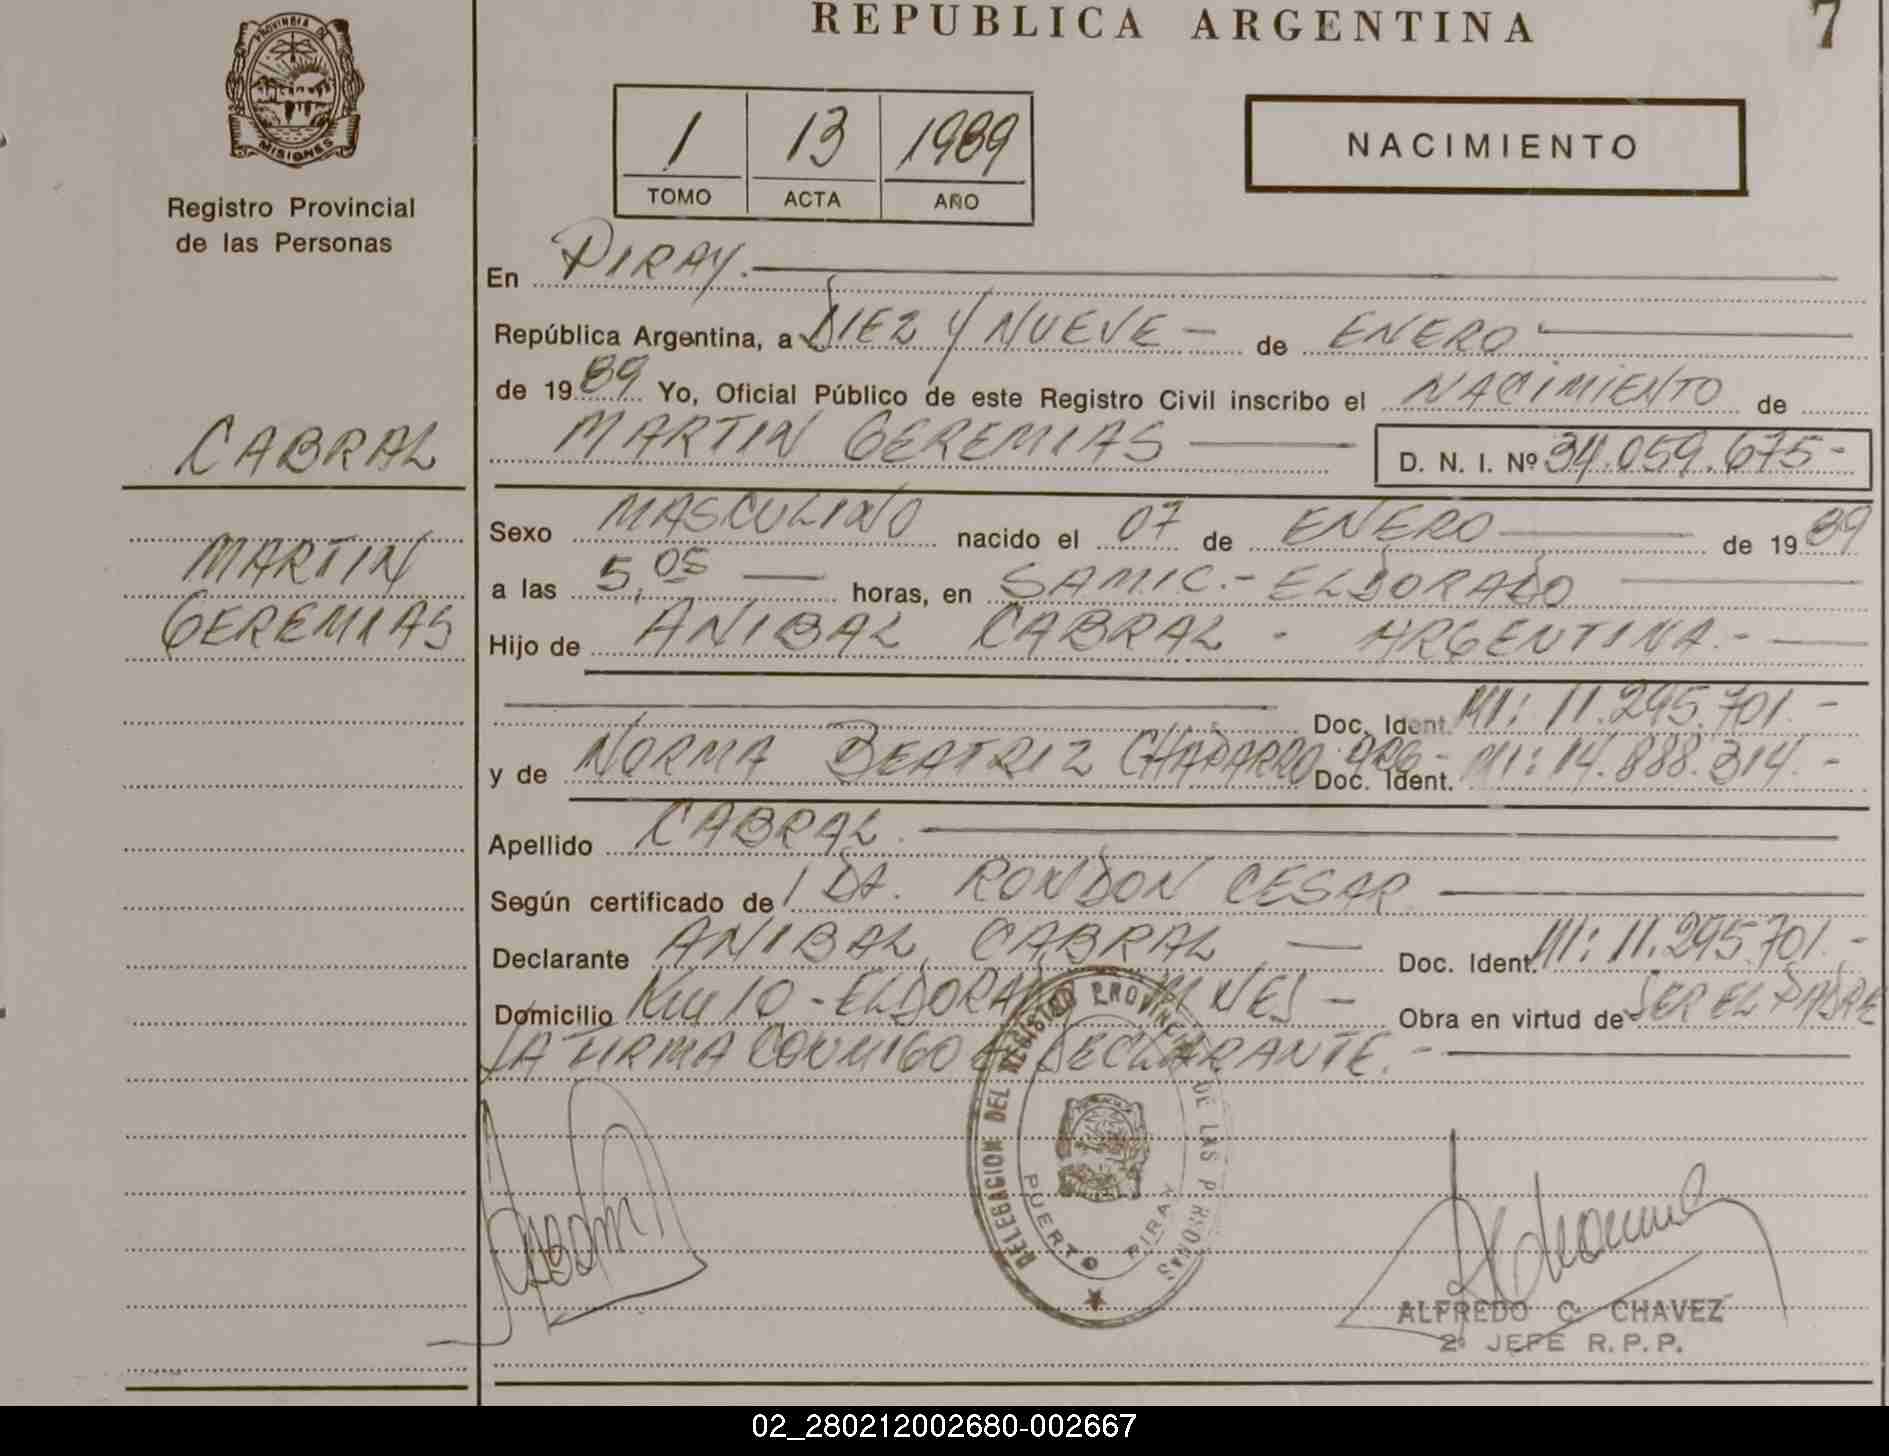 PROVINCIA DE
MISIONES
Registro Provincial
de las Personas
CABRAL
MARTIN
GEREMIAS
REPUBLICA ARGENTINA
7
1 13 1989
TOMO ACTA AÑO
NACIMIENTO
En PIRAY.
República Argentina, a DIEZ Y NUEVE - de ENERO
de 1989 Yo, Oficial Público de este Registro Civil inscribo el NACIMIENTO de
MARTIN GEREMIAS D. N. I. Nº 34.059.675-
Sexo MASCULINO nacido el 07 de ENERO de 1989
a las 5,05 horas, en SAMIC.- ELDORADO
Hijo de ANIBAL CABRAL - ARGENTINA.-
Doc. Ident. MI: 11.295.701.-
y de NORMA BEATRIZ CHAPARRO ARG- Doc. Ident. MI: 14.888.314.-
Apellido CABRAL.
Según certificado de / DR. RONDON CESAR
Declarante ANIBAL CABRAL Doc. Ident. MI: 11.295.701.-
Domicilio KM 10 - ELDORADO MNES - Obra en virtud de SER EL PADRE
LA FIRMA CONMIGO EL DECLARANTE.-
DELEGACION DEL REGISTRO PROVINCIAL DE LAS PERSONAS
PUERTO PIRAY
ALFREDO C. CHAVEZ
2º JEFE R.P.P.
02_280212002680-002667